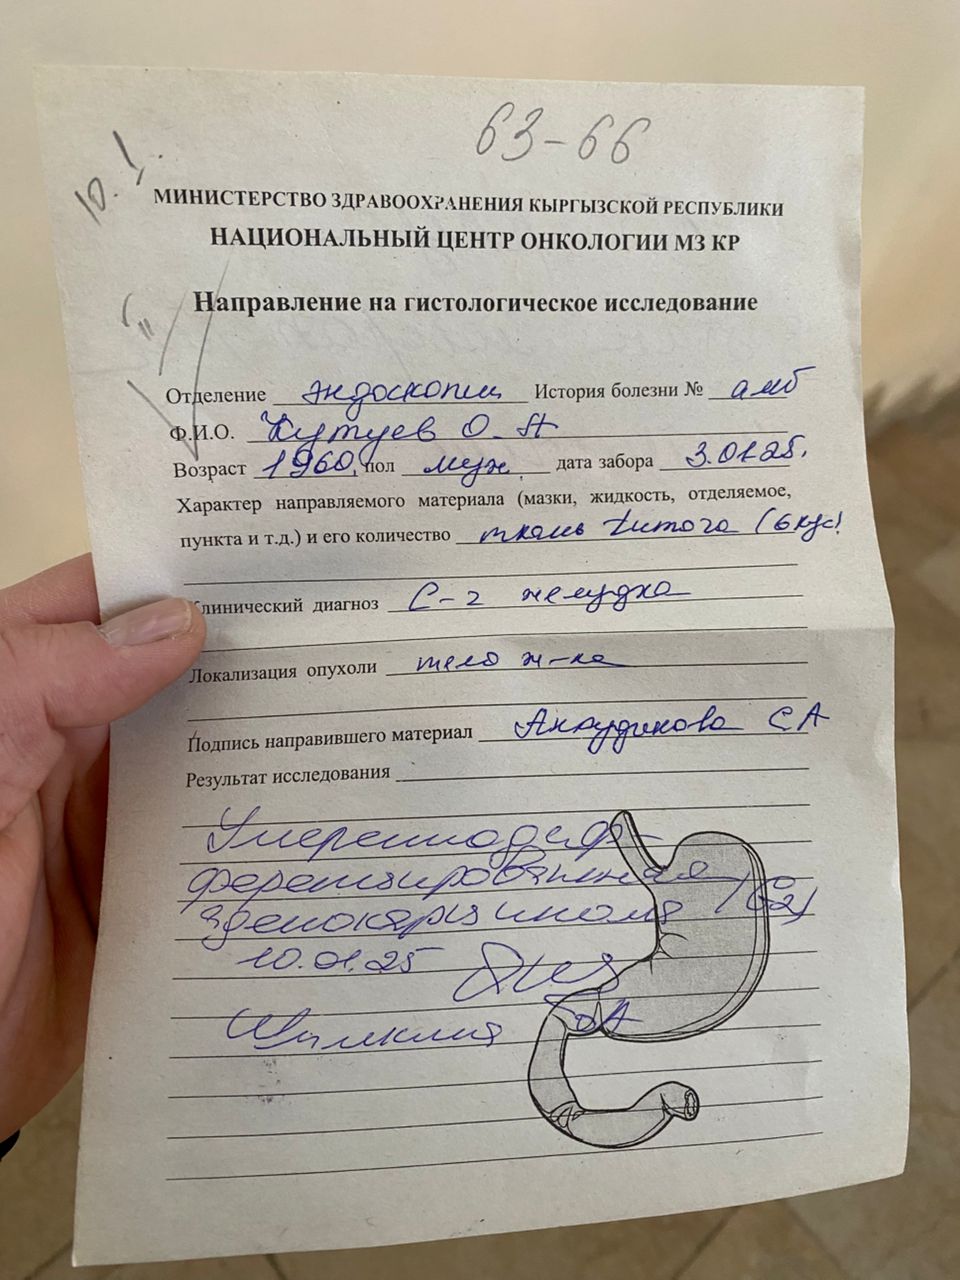 63-66
10.1
МИНИСТЕРСТВО ЗДРАВООХРАНЕНИЯ КЫРГЫЗСКОЙ РЕСПУБЛИКИ
НАЦИОНАЛЬНЫЙ ЦЕНТР ОНКОЛОГИИ МЗ КР
Направление на гистологическое исследование
Отделение эндоскопии История болезни № амб
Ф.И.О. Кутуев О.А
Возраст 1960, пол муж, дата забора 3.01.25.
Характер направляемого материала (мазки, жидкость, отделяемое,
пункта и т.д.) и его количество ткань (6 кус)
Клинический диагноз C-r желудка
Локализация опухоли тело ж-ка
Подпись направившего материал СА
Результат исследования
Умереннодиф-
ференцированная
аденокарцинома (G2)
10.01.25